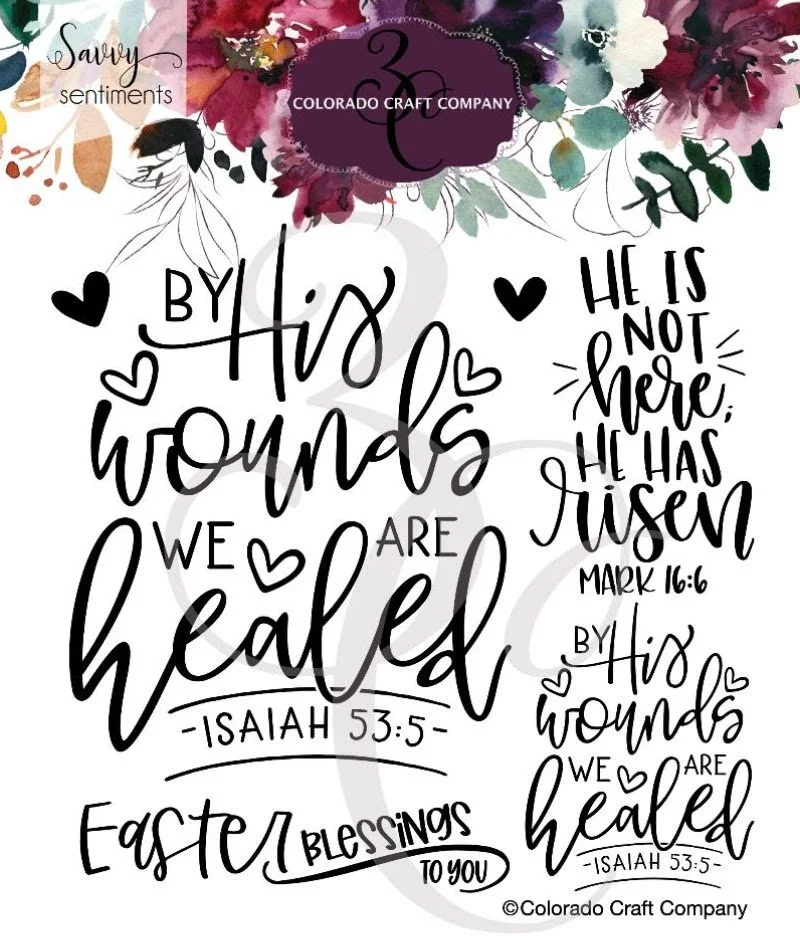 Savvy
sentiments
3C
COLORADO CRAFT COMPANY
BY His
wounds
WE ARE
healed
-ISAIAH 53:5-
HE IS
NOT
here;
HE HAS
risen
MARK 16:6
BY His
wounds
WE ARE
healed
-ISAIAH 53:5-
Easter BLESSINGS
TO YOU
©Colorado Craft Company